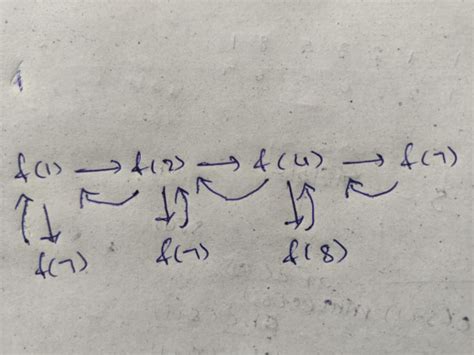 f(1) → f(2) → f(4) → f(7)
f(7) f(7) f(8)